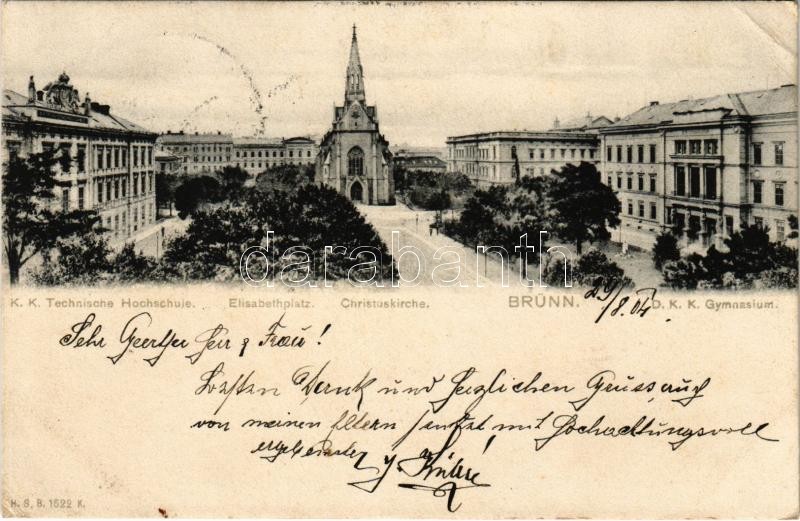 darabanth.com
K. K. Technische Hochschule. Elisabethplatz. Christuskirche. BRÜNN. D. K. K. Gymnasium.
29/8.04
Sehr Geerther Herr & Frau!
Besten Dank und herzlichen Gruss, auch
von meinen Eltern sendet mit Hochachtungsvoll
ergebenster
H. S. B. 1522 K.